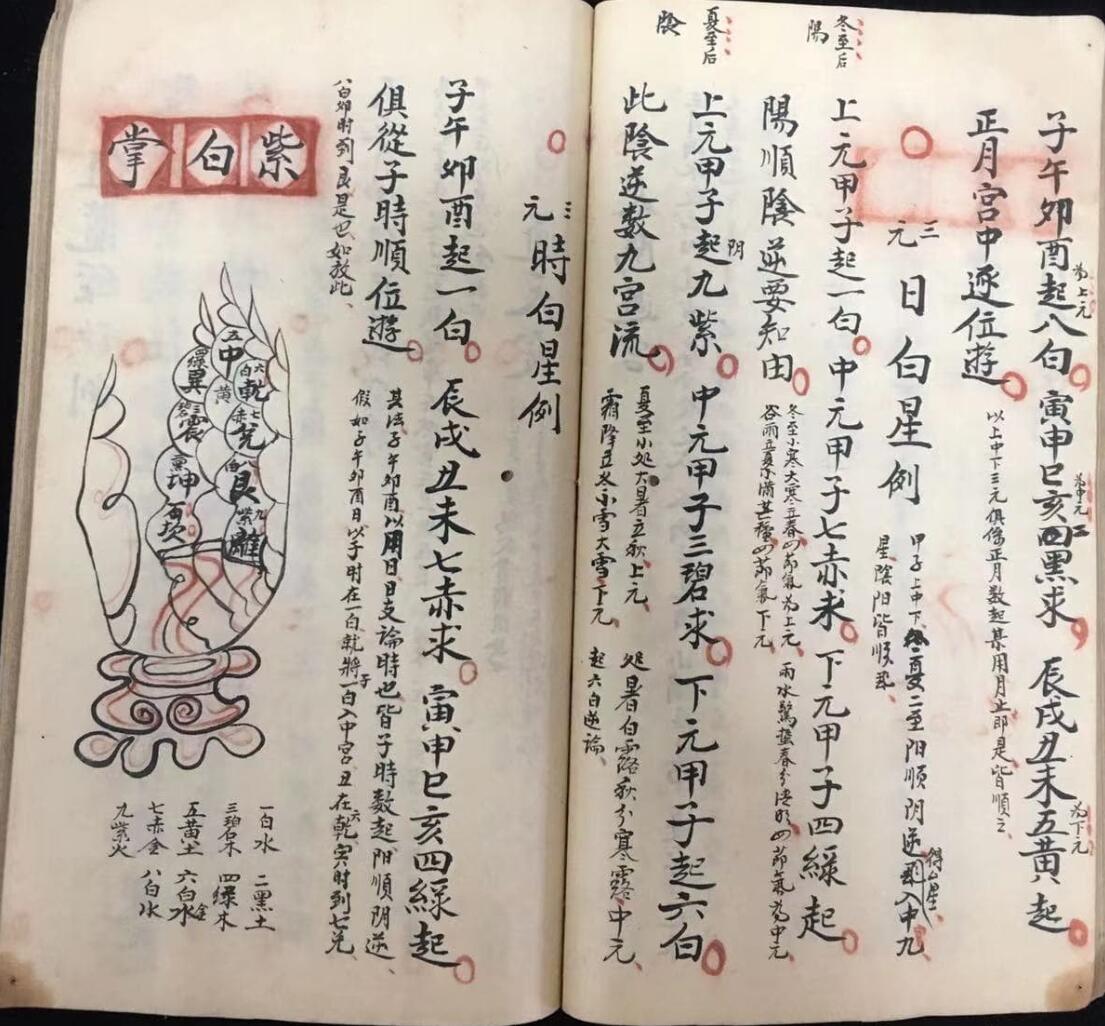 子午卯酉起八白 寅申巳亥四黑求 辰戌丑未五黄起
為上元
為中元
為下元
正月宫中逐位遊
以上中下三元俱係正月数起某用月止即是皆順之
三元日白星例
甲子上中下冬夏二至阳順阴逆入中九
得山星
星陰阳皆順
冬至后
陽
上元甲子起一白 中元甲子七赤求 下元甲子四緑起
陽順陰逆要知由
冬至小寒大寒立春四節氣為上元 雨水驚蟄春分清明四節氣為中元
谷雨立夏小滿芒種四節氣下元
夏至后
陰
上元甲子起九紫 中元甲子三碧求 下元甲子起六白
阴
此陰逆数九宫流
夏至小处大暑立秋上元 処暑白露秋分寒露中元
霜降立冬小雪大雪下元 起六白逆論
三元時白星例
子午卯酉起一白 辰戌丑未七赤求 寅申巳亥四緑起
俱從子時順位遊
其法子午卯酉以用日日支論時也皆子時数起阳順阴逆
假如子午卯酉日以子时在一白就將一白入中宫丑在乾寅时到七兑
子
六
八白卯时到艮是也如放此
紫白掌
五中黄
六白乾
七赤兑
八白艮
九紫離
四緑巽
三碧震
二黑坤
一白坎
一白水 二黑土
三碧木 四緑木
五黄土 六白水
金
七赤金 八白水
九紫火